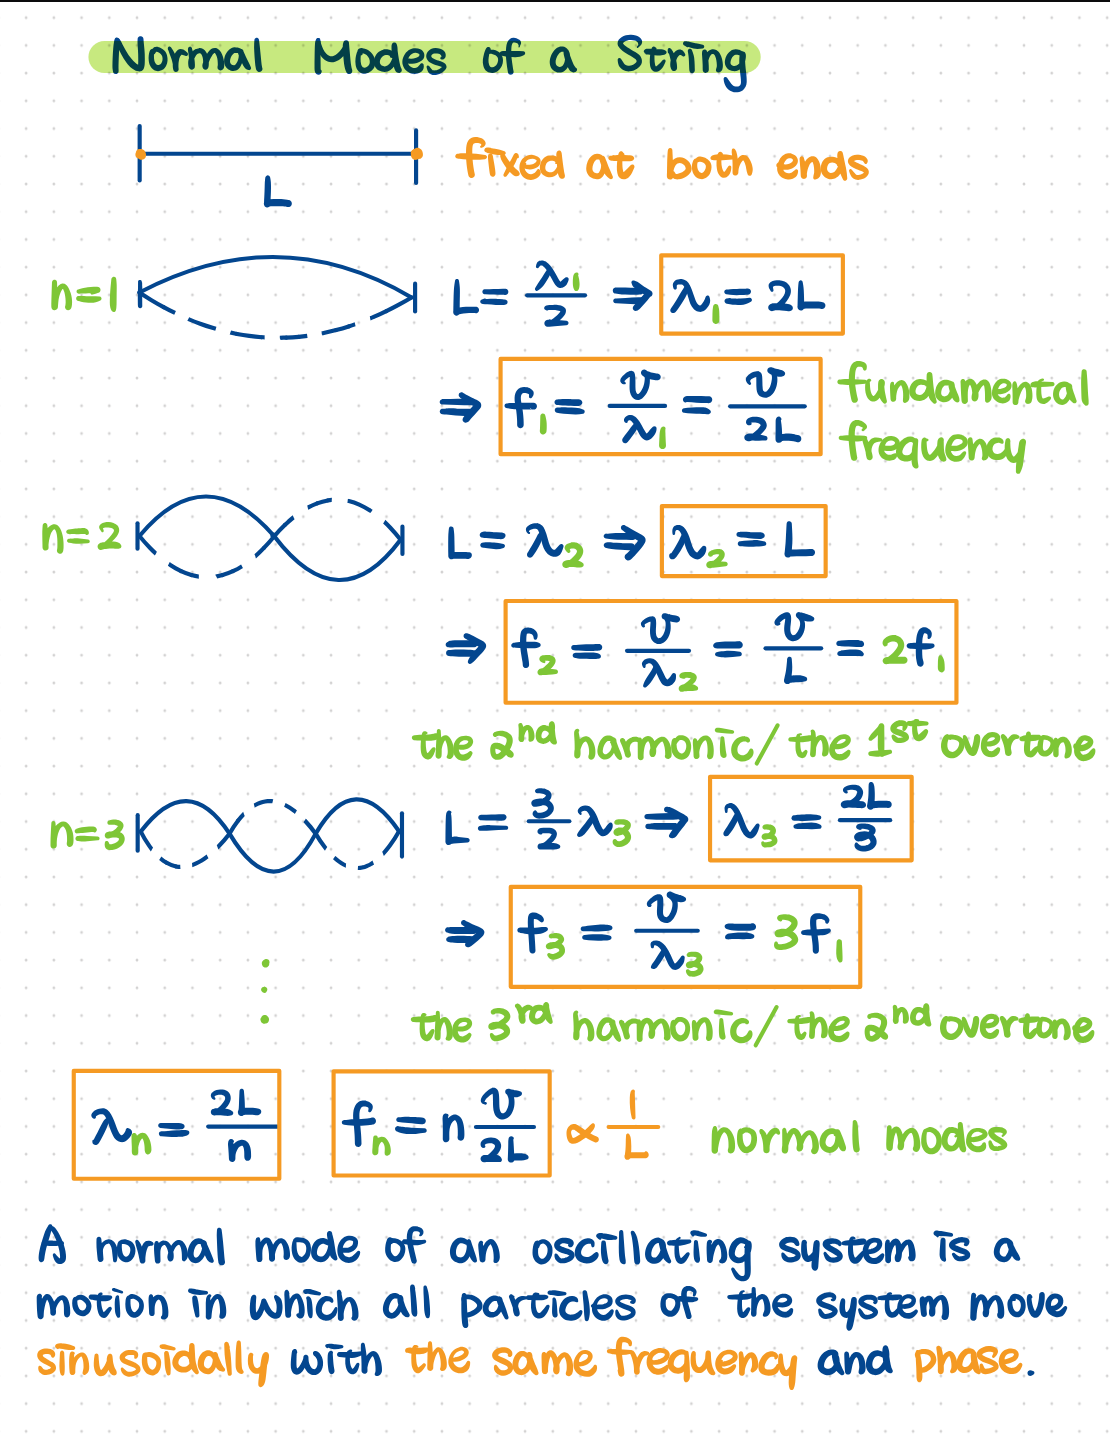 Normal Modes of a String
fixed at both ends
L
n=1
L = λ₁/2 ⇒ λ₁ = 2L
⇒ f₁ = v/λ₁ = v/2L fundamental
frequency
n=2
L = λ₂ ⇒ λ₂ = L
⇒ f₂ = v/λ₂ = v/L = 2f₁
the 2nd harmonic/the 1st overtone
n=3
L = 3/2 λ₃ ⇒ λ₃ = 2L/3
⇒ f₃ = v/λ₃ = 3f₁
the 3rd harmonic/the 2nd overtone
λₙ = 2L/n fₙ = n v/2L ∝ 1/L normal modes
A normal mode of an oscillating system is a
motion in which all particles of the system move
sinusoidally with the same frequency and phase.